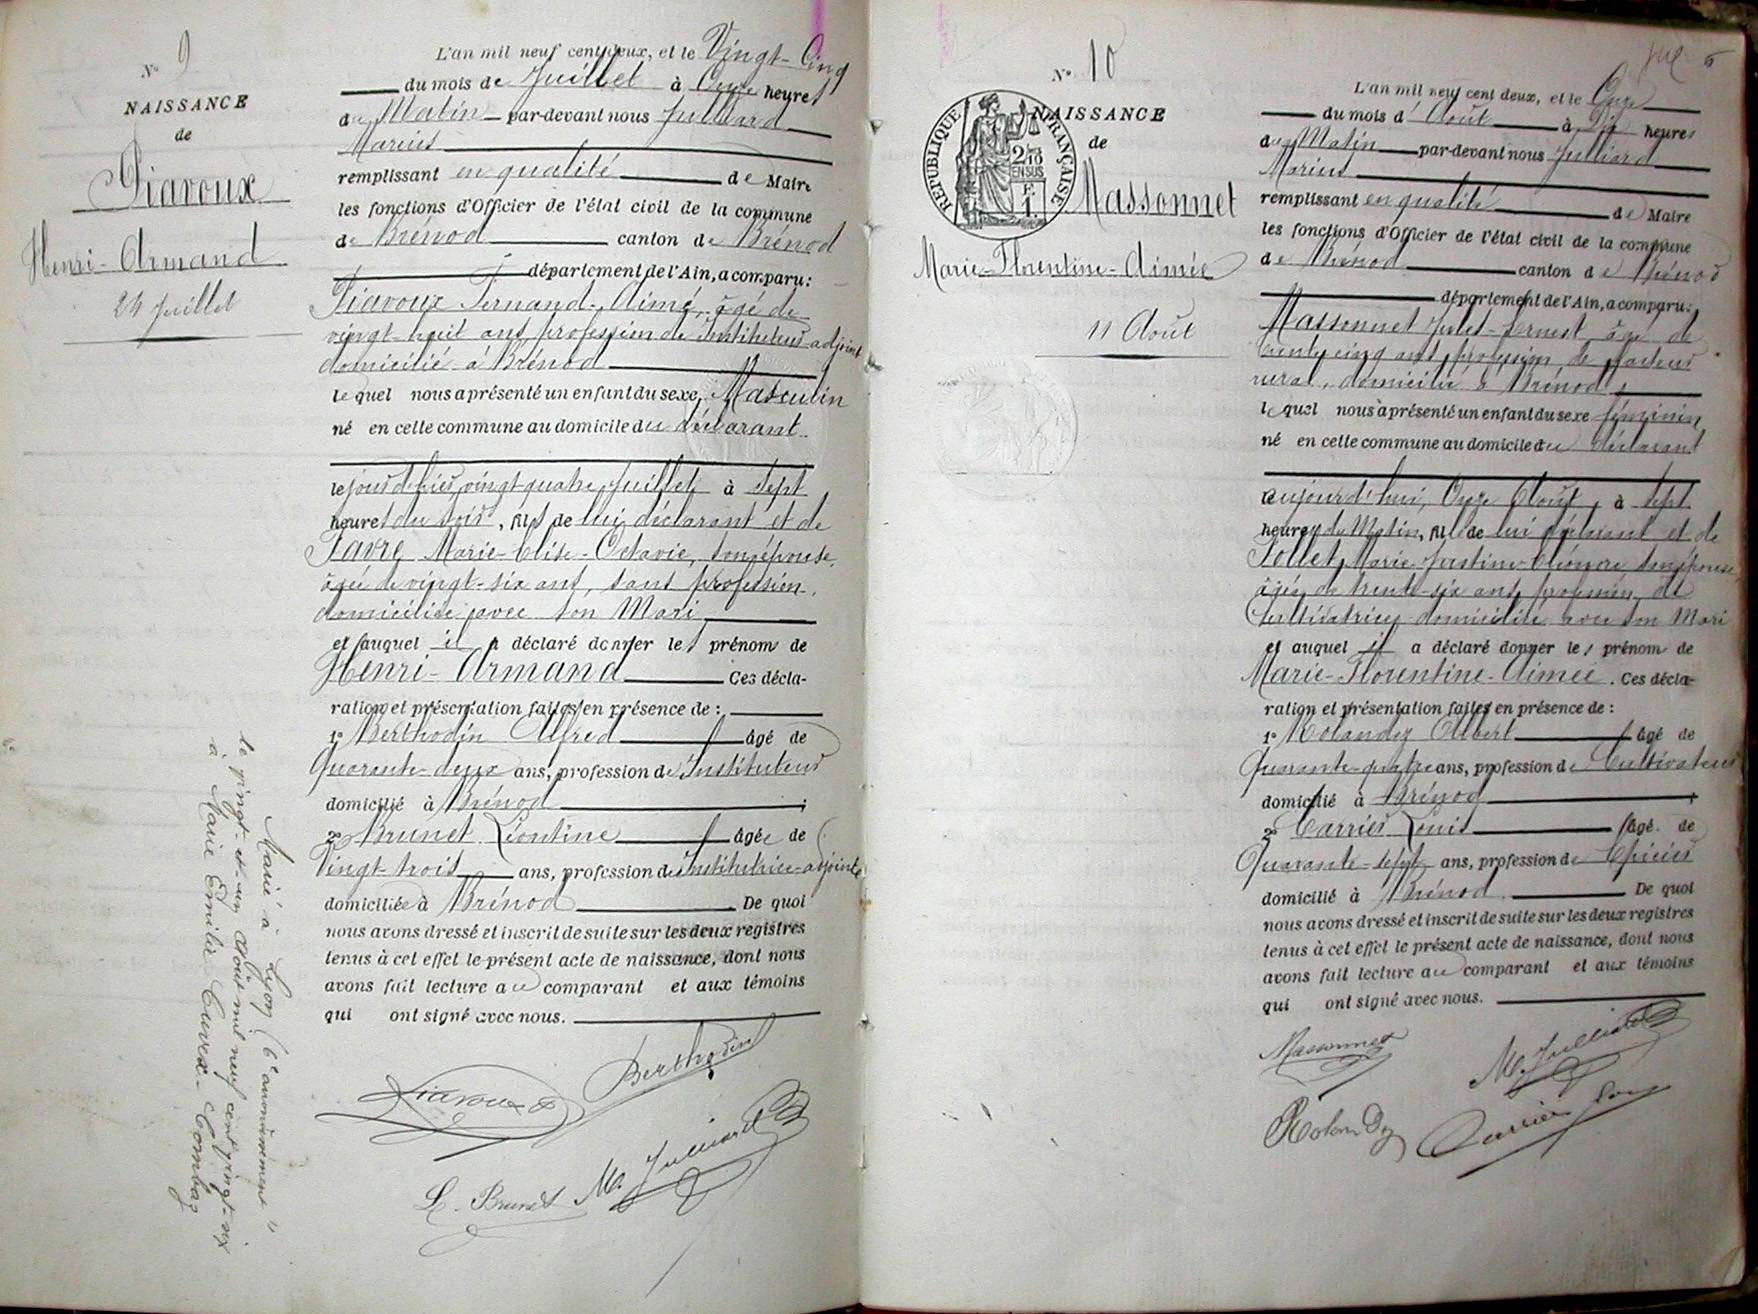 N° 9
NAISSANCE
de
Piavoux
Henri-Armand
24 Juillet
Marié à Lyon (6e arrondissement)
le vingt-et-un Août mil neuf cent vingt-six
à Marie Emilie Curvex-Combaz
L'an mil neuf cent deux, et le Vingt-Cinq
du mois de Juillet à Onze heures
du Matin par-devant nous Julliard
Marius
remplissant en qualité de Maire
les fonctions d'Officier de l'état civil de la commune
de Brénod canton de Brénod
département de l'Ain, a comparu:
Piavoux Fernand-Aimé, âgé de
vingt-huit ans, profession de Instituteur-adjoint
domicilié à Brénod
lequel nous a présenté un enfant du sexe Masculin
né en cette commune au domicile du déclarant
le jour d'hier, vingt quatre Juillet, à Sept
heures du soir, fils de lui déclarant et de
Favre Marie-Elise-Octavie, son épouse,
âgée de vingt-six ans, sans profession,
domiciliée avec son Mari
et auquel il a déclaré donner les prénoms de
Henri-Armand Ces décla-
ration et présentation faites en présence de :
1° Berthodin Alfred âgé de
Quarante-deux ans, profession de Instituteur
domicilié à Brénod ;
2° Brunet Léontine âgée de
Vingt-trois ans, profession de institutrice-adjointe
domiciliée à Brénod De quoi
nous avons dressé et inscrit de suite sur les deux registres
tenus à cet effet le présent acte de naissance, dont nous
avons fait lecture au comparant et aux témoins
qui ont signé avec nous.
Piavoux Berthodin
L. Brunet M. Julliard
6
N° 10
RÉPUBLIQUE FRANÇAISE
2/10
EN SUS
F.
1.
NAISSANCE
de
Massonnet
Marie-Florentine-Aimée
11 Août
L'an mil neuf cent deux, et le Onze
du mois d'Août à Dix heures
du Matin par-devant nous Julliard
Marius
remplissant en qualité de Maire
les fonctions d'Officier de l'état civil de la commune
de Brénod canton de Brénod
département de l'Ain, a comparu:
Massonnet Jules-Ernest, âgé de
trente cinq ans, profession de facteur
rural, domicilié à Brénod,
lequel nous a présenté un enfant du sexe féminin
né en cette commune au domicile du déclarant
aujourd'hui, Onze Août, à Sept
heures du Matin, fille de lui déclarant et de
Marie-Justine-Eléonore son épouse,
âgée de trente-six ans, profession de
Cultivatrice, domiciliée avec son Mari
et auquel il a déclaré donner les prénoms de
Marie-Florentine-Aimée. Ces décla-
ration et présentation faites en présence de :
1° Rolandez Albert âgé de
Quarante-quatre ans, profession de Cultivateur
domicilié à Brénod ;
2° Carrier Louis âgé de
Quarante-sept ans, profession de Epicier
domicilié à Brénod. De quoi
nous avons dressé et inscrit de suite sur les deux registres
tenus à cet effet le présent acte de naissance, dont nous
avons fait lecture au comparant et aux témoins
qui ont signé avec nous.
Massonnet M. Julliard
Rolandez Carrier Louis